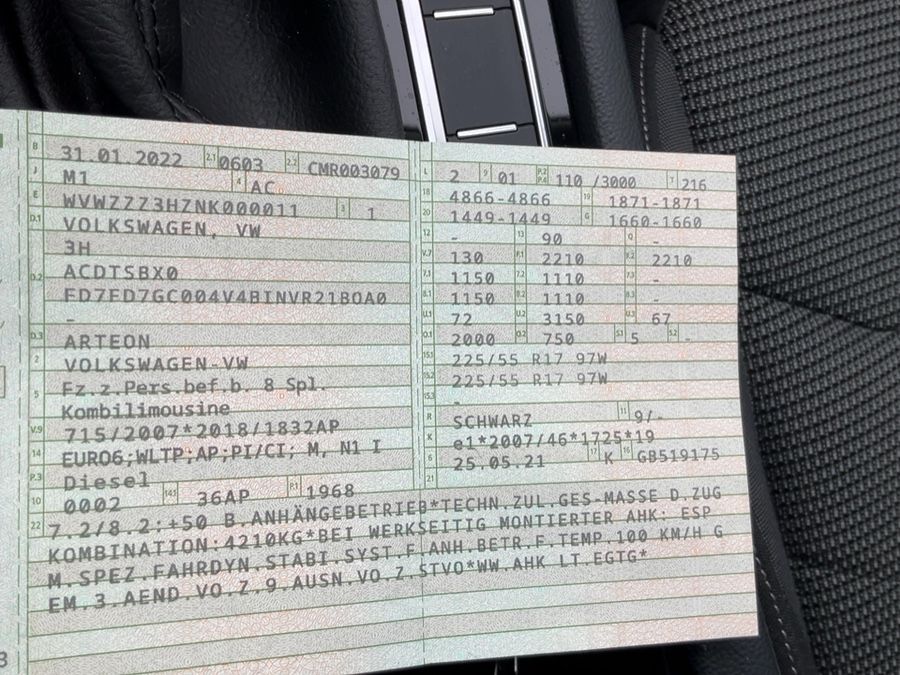 B 31.01.2022 2.1 0603 2.2 CMR003079
J M1 4 AC
E WVWZZZ3HZNK000011 3 1
D.1 VOLKSWAGEN, VW
3H
D.2 ACDTSBX0
FD7FD7GC004V4BINVR21BOA0
-
D.3 ARTEON
2 VOLKSWAGEN-VW
5 Fz.z.Pers.bef.b. 8 Spl.
Kombilimousine
V.9 715/2007*2018/1832AP
14 EURO6;WLTP;AP;PI/CI; M, N1 I
P.3 Diesel
10 0002 14.1 36AP P.1 1968
L 2 9 01 P.2 P.4 110 /3000 T 216
18 4866-4866 19 1871-1871
20 1449-1449 G 1660-1660
12 - 13 90 Q -
V.7 130 F.1 2210 F.2 2210
7.1 1150 7.2 1110 7.3 -
8.1 1150 8.2 1110 8.3 -
U.1 72 U.2 3150 U.3 67
O.1 2000 O.2 750 S.1 5 S.2 -
15.1 225/55 R17 97W
15.2 225/55 R17 97W
15.3 -
R SCHWARZ 11 9/-
K e1*2007/46*1725*19
6 25.05.21 17 K 16 GB519175
21
22 7.2/8.2:+50 B.ANHÄNGEBETRIEB*TECHN.ZUL.GES-MASSE D.ZUG
KOMBINATION:4210KG*BEI WERKSEITIG MONTIERTER AHK: ESP
M.SPEZ.FAHRDYN.STABI.SYST.F.ANH.BETR.F.TEMP.100 KM/H G
EM.3.AEND.VO.Z.9.AUSN.VO.Z.STVO*WW.AHK LT.EGTG*